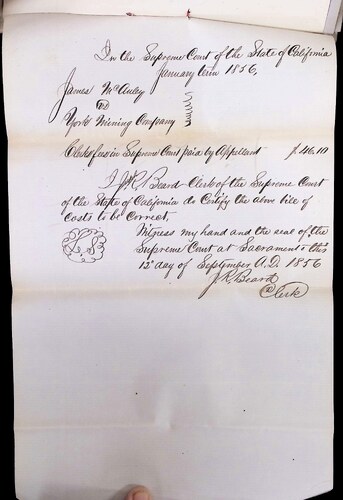 In the Supreme Court of the State of California
January term 1856,
James McAuley
vs
York Mining Company
Clerks fees in Supreme Court paid by Appellant $46.10
I J.R. Beard Clerk of the Supreme Court
of the State of California do Certify the above bill of
costs to be Correct.
Witness my hand and the seal of the
L.S
Supreme Court at Sacramento this
12 day of September A.D. 1856
J.R. Beard
Clerk